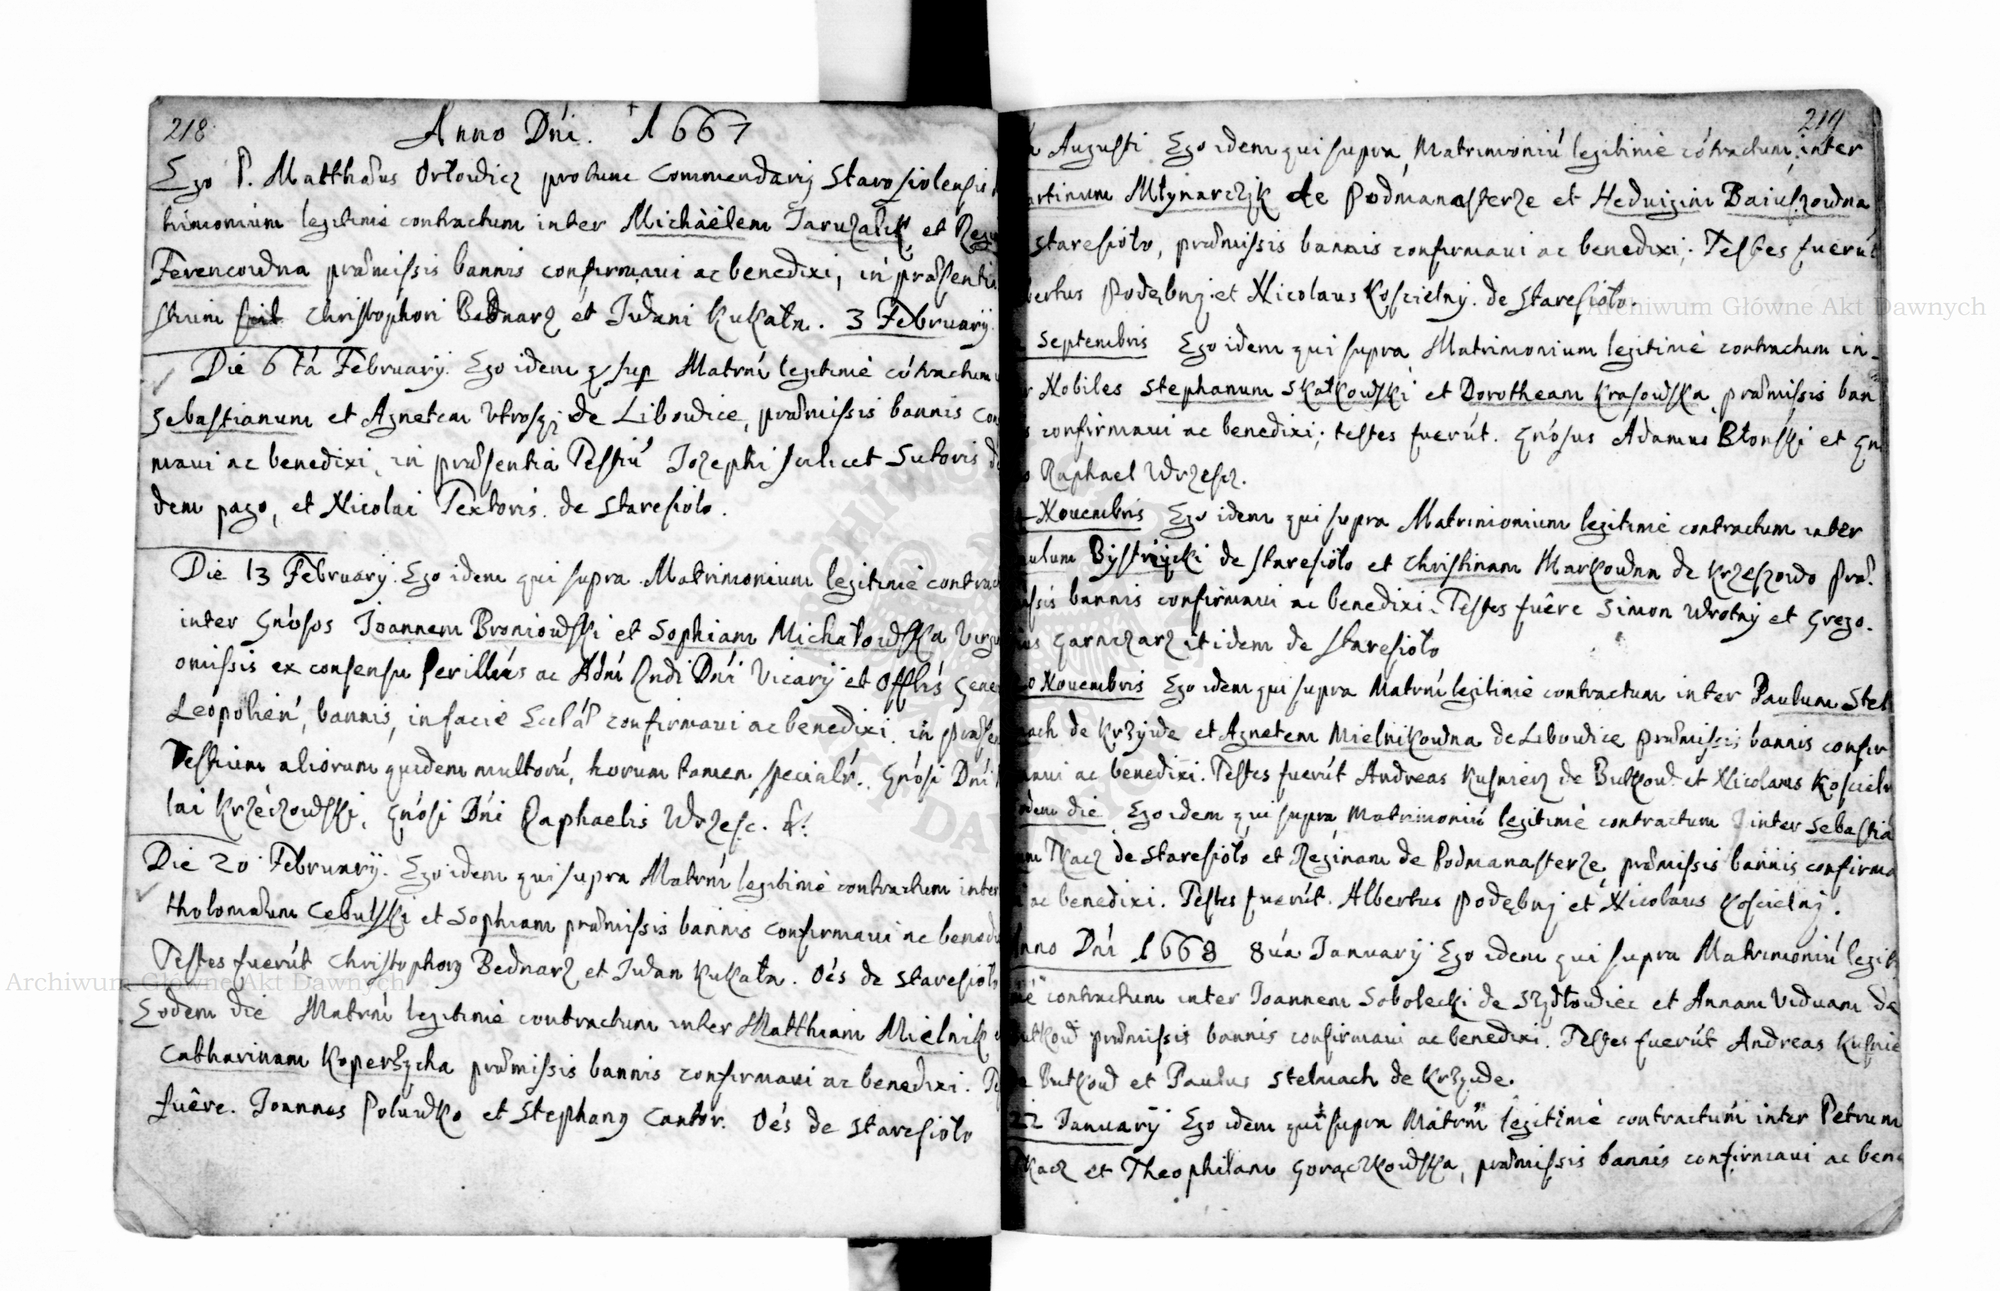 218
Anno Dni. 1667
Ego P. Matthæus Orłowicz protunc Commendarij Starosiolensis
trimonium legitimè contractum inter Michàëlem Jaruzalik, et Regi
Ferencowna præmissis bannis confirmaui ac benedixi, in præsentia
stium Christophori Bednarz et Iwani Kukała. 3 February
Die 6 tá February. Ego idem q sup Matrḿ legitimè cótractum
Sebastianum et Agnetem Vtrosq; de Libowice, præmissis bannis con
maui ac benedixi, in præsentia Testiú Iozephi scilicet Sutoris
dem pago, et Nicolai Textoris. de Staresioło.
Die 13 February. Ego idem qui supra Matrimonium legitimè contract
inter Gńosos Ioannem Broniowski et Sophiam Michałowska Virgi
omissis ex consensu Perillús ac Adḿ Rndi Dńi Vicarÿ et Offlís Gener
Leopolień, bannis, in facie Ecclæ confirmaui ac benedixi. in præsen
Testium aliorum quidem multorú, horum tamen specialr. Gńosi Dńi
lai Krzéczowski, Gńosi Dńi Raphaelis Wrzesc. &.
Die 20 February. Ego idem qui supra Matrḿ legitimè contractum inter
tholomæum Cebulski et Sophiam præmissis bannis confirmaui ac bened
Testes fuerút Christophorg Bednarz et Iwan Kukała. Oés de Staresioło
Eodem die Matrḿ legitimè contractum inter Matthiam Mielnik
Catharinam Koperszcha præmissis bannis confirmaui ac benedixi.
fuêre. Ioannes Poluwko et Stephang Cantor. Oés de Staresioło
219
Augusti Ego idem qui supra Matrimoniú legitimè cótractum, inter
artinum Młynarczjk de Podmanasterze et Heduigim Baiuszowna
Staresioło, præmissis bannis confirmaui ac benedixi. Testes fuerút
bertus Podębnj et Nicolaus Koscielny. de Staresioło.
Septembris Ego idem qui supra Matrimonium legitimè contractum in-
r Nobiles Stephanum Skałkowski et Dorotheam Krasowska, præmissis ban
s confirmaui ac benedixi; testes fuerút. Gńosus Adamus Błonski et Gn
Raphael Wrzesz.
Nouembris Ego idem qui supra Matrimonium legitimè contractum inter
ulum Bystrzycki de Staresioło et Christinam Markowna de Krzeszowo præ.
issis bannis confirmaui ac benedixi. Testes fuêre Simon Wrotny et Grego.
ius Garnczarz itidem de Staresioło
Nouembris Ego idem qui supra Matrḿ legitimè contractum inter Paulum Stel
mach de Krzywe et Agnetem Mielnikowna de Libowice præmissis bannis confir
maui ac benedixi. Testes fuerút Andreas Kusnierz de Butkow et Nicolaus Koscieln
odem die Ego idem qui supra Matrimoniú legitimè contractum inter Sebastia
um Tkacz de Staresioło et Reginam de Podmanasterze, præmissis bannis confirma
ac benedixi. Testes fuerút. Albertus Podębnj et Nicolaus Koscielnj.
Anno Dńi 1668 8ua Ianuarÿ Ego idem qui supra Matrimoniú legiti
mè contractum inter Ioannem Sobolecki de Szydłowiec et Annam Viduam de
utkow præmissis bannis confirmaui ac benedixi. Testes fuerút Andreas Kusnie
Butkow et Paulus Stelmach de Krzywe.
22 Ianuarÿ Ego idem qui supra Matrḿ legitimè contractum inter Petrum
kacz et Theophilam Gorączkowska, præmissis bannis confirmaui ac bene
Archiwum Główne Akt Dawnych
Archiwum Główne Akt Dawnych